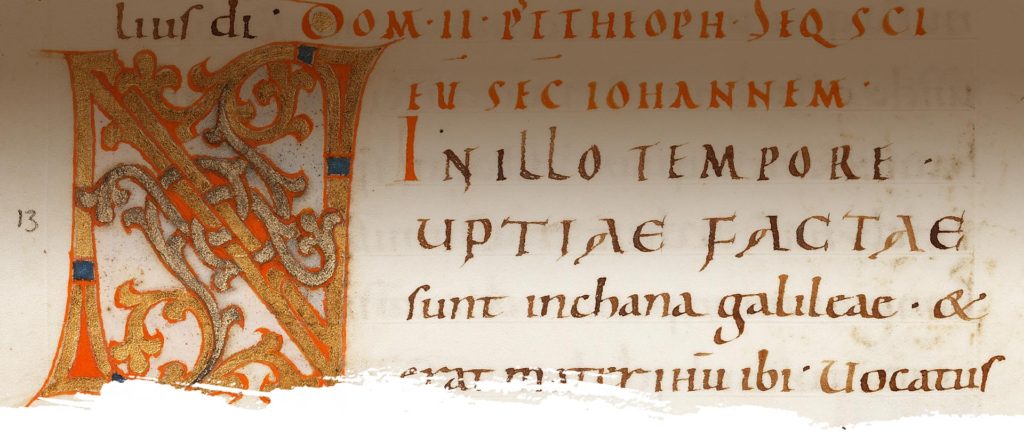 lius di · DOM · II · P' THEOPH · SEQ SCI
EŪ SEC̄ IOHANNEM ·
IN ILLO TEMPORE ·
13
NUPTIAE FACTAE
sunt inchana galileae · &
erat mater ihū ibi · Uocatus